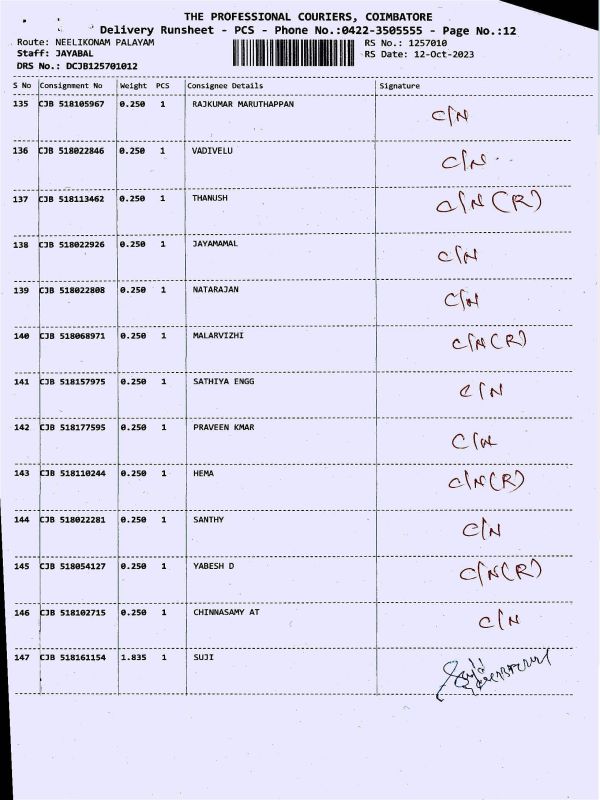 THE PROFESSIONAL COURIERS, COIMBATORE
Delivery Runsheet - PCS - Phone No.:0422-3505555 - Page No.:12
Route: NEELIKONAM PALAYAM RS No.: 1257010
Staff: JAYABAL RS Date: 12-Oct-2023
DRS No.: DCJB125701012
S No Consignment No Weight PCS Consignee Details Signature
135 CJB 518105967 0.250 1 RAJKUMAR MARUTHAPPAN C/N
136 CJB 518022846 0.250 1 VADIVELU C/N
137 CJB 518113462 0.250 1 THANUSH C/N (R)
138 CJB 518022926 0.250 1 JAYAMAMAL C/N
139 CJB 518022808 0.250 1 NATARAJAN C/N
140 CJB 518068971 0.250 1 MALARVIZHI C/N (R)
141 CJB 518157975 0.250 1 SATHIYA ENGG C/N
142 CJB 518177595 0.250 1 PRAVEEN KMAR C/N
143 CJB 518110244 0.250 1 HEMA C/N (R)
144 CJB 518022281 0.250 1 SANTHY C/N
145 CJB 518054127 0.250 1 YABESH D C/N (R)
146 CJB 518102715 0.250 1 CHINNASAMY AT C/N
147 CJB 518161154 1.835 1 SUJI